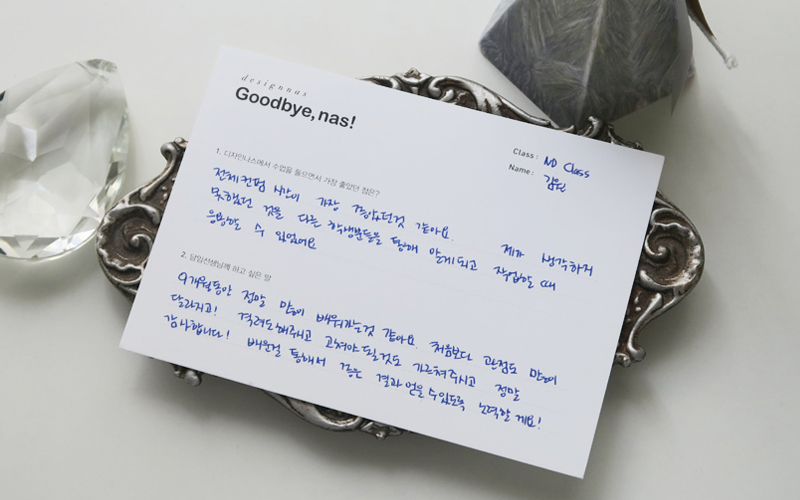 designnas
Goodbye, nas!
Class : ND Class
Name :
1. 디자인나스에서 수업을 들으면서 가장 좋았던 점은?
전체컨펌 시간이 가장 좋았던것 같아요. 제가 생각하지
못했던 것을 다른 학생분들을 통해 알게되고 작업할 때
응용할 수 있었어요
2. 담임선생님께 하고 싶은 말
9개월동안 정말 많이 배워가는것 같아요. 처음보다 관점도 많이
달라지고! 격려도해주시고 고쳐야될것도 가르쳐주시고 정말
감사합니다! 배운걸 통해서 좋은 결과 얻을수있도록 노력할게요!